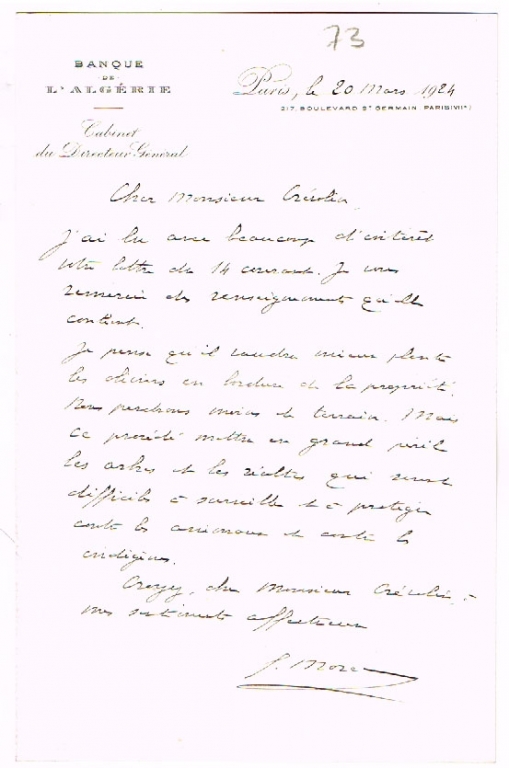 73
BANQUE
DE
L'ALGÉRIE
Paris, le 20 Mars 1924
217, BOULEVARD ST GERMAIN, PARIS (VIIe)
Cabinet
du Directeur Général
Cher Monsieur
J'ai lu avec beaucoup d'intérêt
votre lettre du 14 courant. Je vous
remercie des renseignements qu'elle
contient.
Je pense qu'il vaudra mieux planter
les oliviers en bordure de la propriété.
Nous perdrons moins de terrain. Mais
ce procédé mettra en grand péril
les arbres et les récoltes qui seront
difficiles à surveiller et à protéger
contre les animaux et contre les
indigènes.
Croyez, cher Monsieur à
mes sentiments affectueux